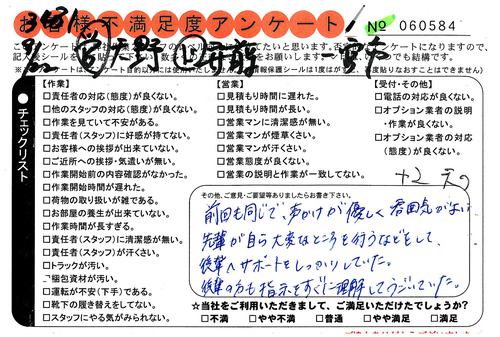 お客様不満足度アンケート
No 060584
【作業】
□責任者の対応(態度)が良くない。
□他のスタッフの対応(態度)が良くない。
□作業を見ていて不安がある。
□責任者(スタッフ)に好感が持てない。
□お客様への挨拶が出来ていない。
□ご近所への挨拶・気遣いが無い。
□作業開始前の内容確認がなかった。
□作業開始時間が遅れた。
□荷物の取り扱いが雑である。
□お部屋の養生が出来ていない。
□作業時間が長すぎる。
□責任者(スタッフ)に清潔感が無い。
□責任者(スタッフ)が汗くさい。
□トラックが汚い。
□梱包資材が汚い。
□運転が不安(下手)である。
□靴下の履き替えをしてない。
□スタッフにやる気がみられない。
【営業】
□見積もり時間に遅れた。
□見積もり時間が長い。
□営業マンに清潔感が無い。
□営業マンが煙草くさい。
□営業マンが汗くさい。
□営業態度が良くない。
□営業の説明と作業が一致してない。
【受付・その他】
□電話の対応が良くない。
□オプション業者の説明
・作業が良くない。
□オプション業者の対応
(態度)が良くない。
●チェックリスト
その他、ご意見・ご要望等ありましたらお書き下さい。
前回も同じで、声かけが優しく雰囲気がよい
先輩が自ら大変なところを行うなどをして、
後輩へサポートをしっかりしていた。
後輩の方も指示をすぐに理解してうごいていた。
☆当社をご利用いただきまして、ご満足いただけたでしょうか?
□不満 □やや不満 □普通 □やや満足 □満足